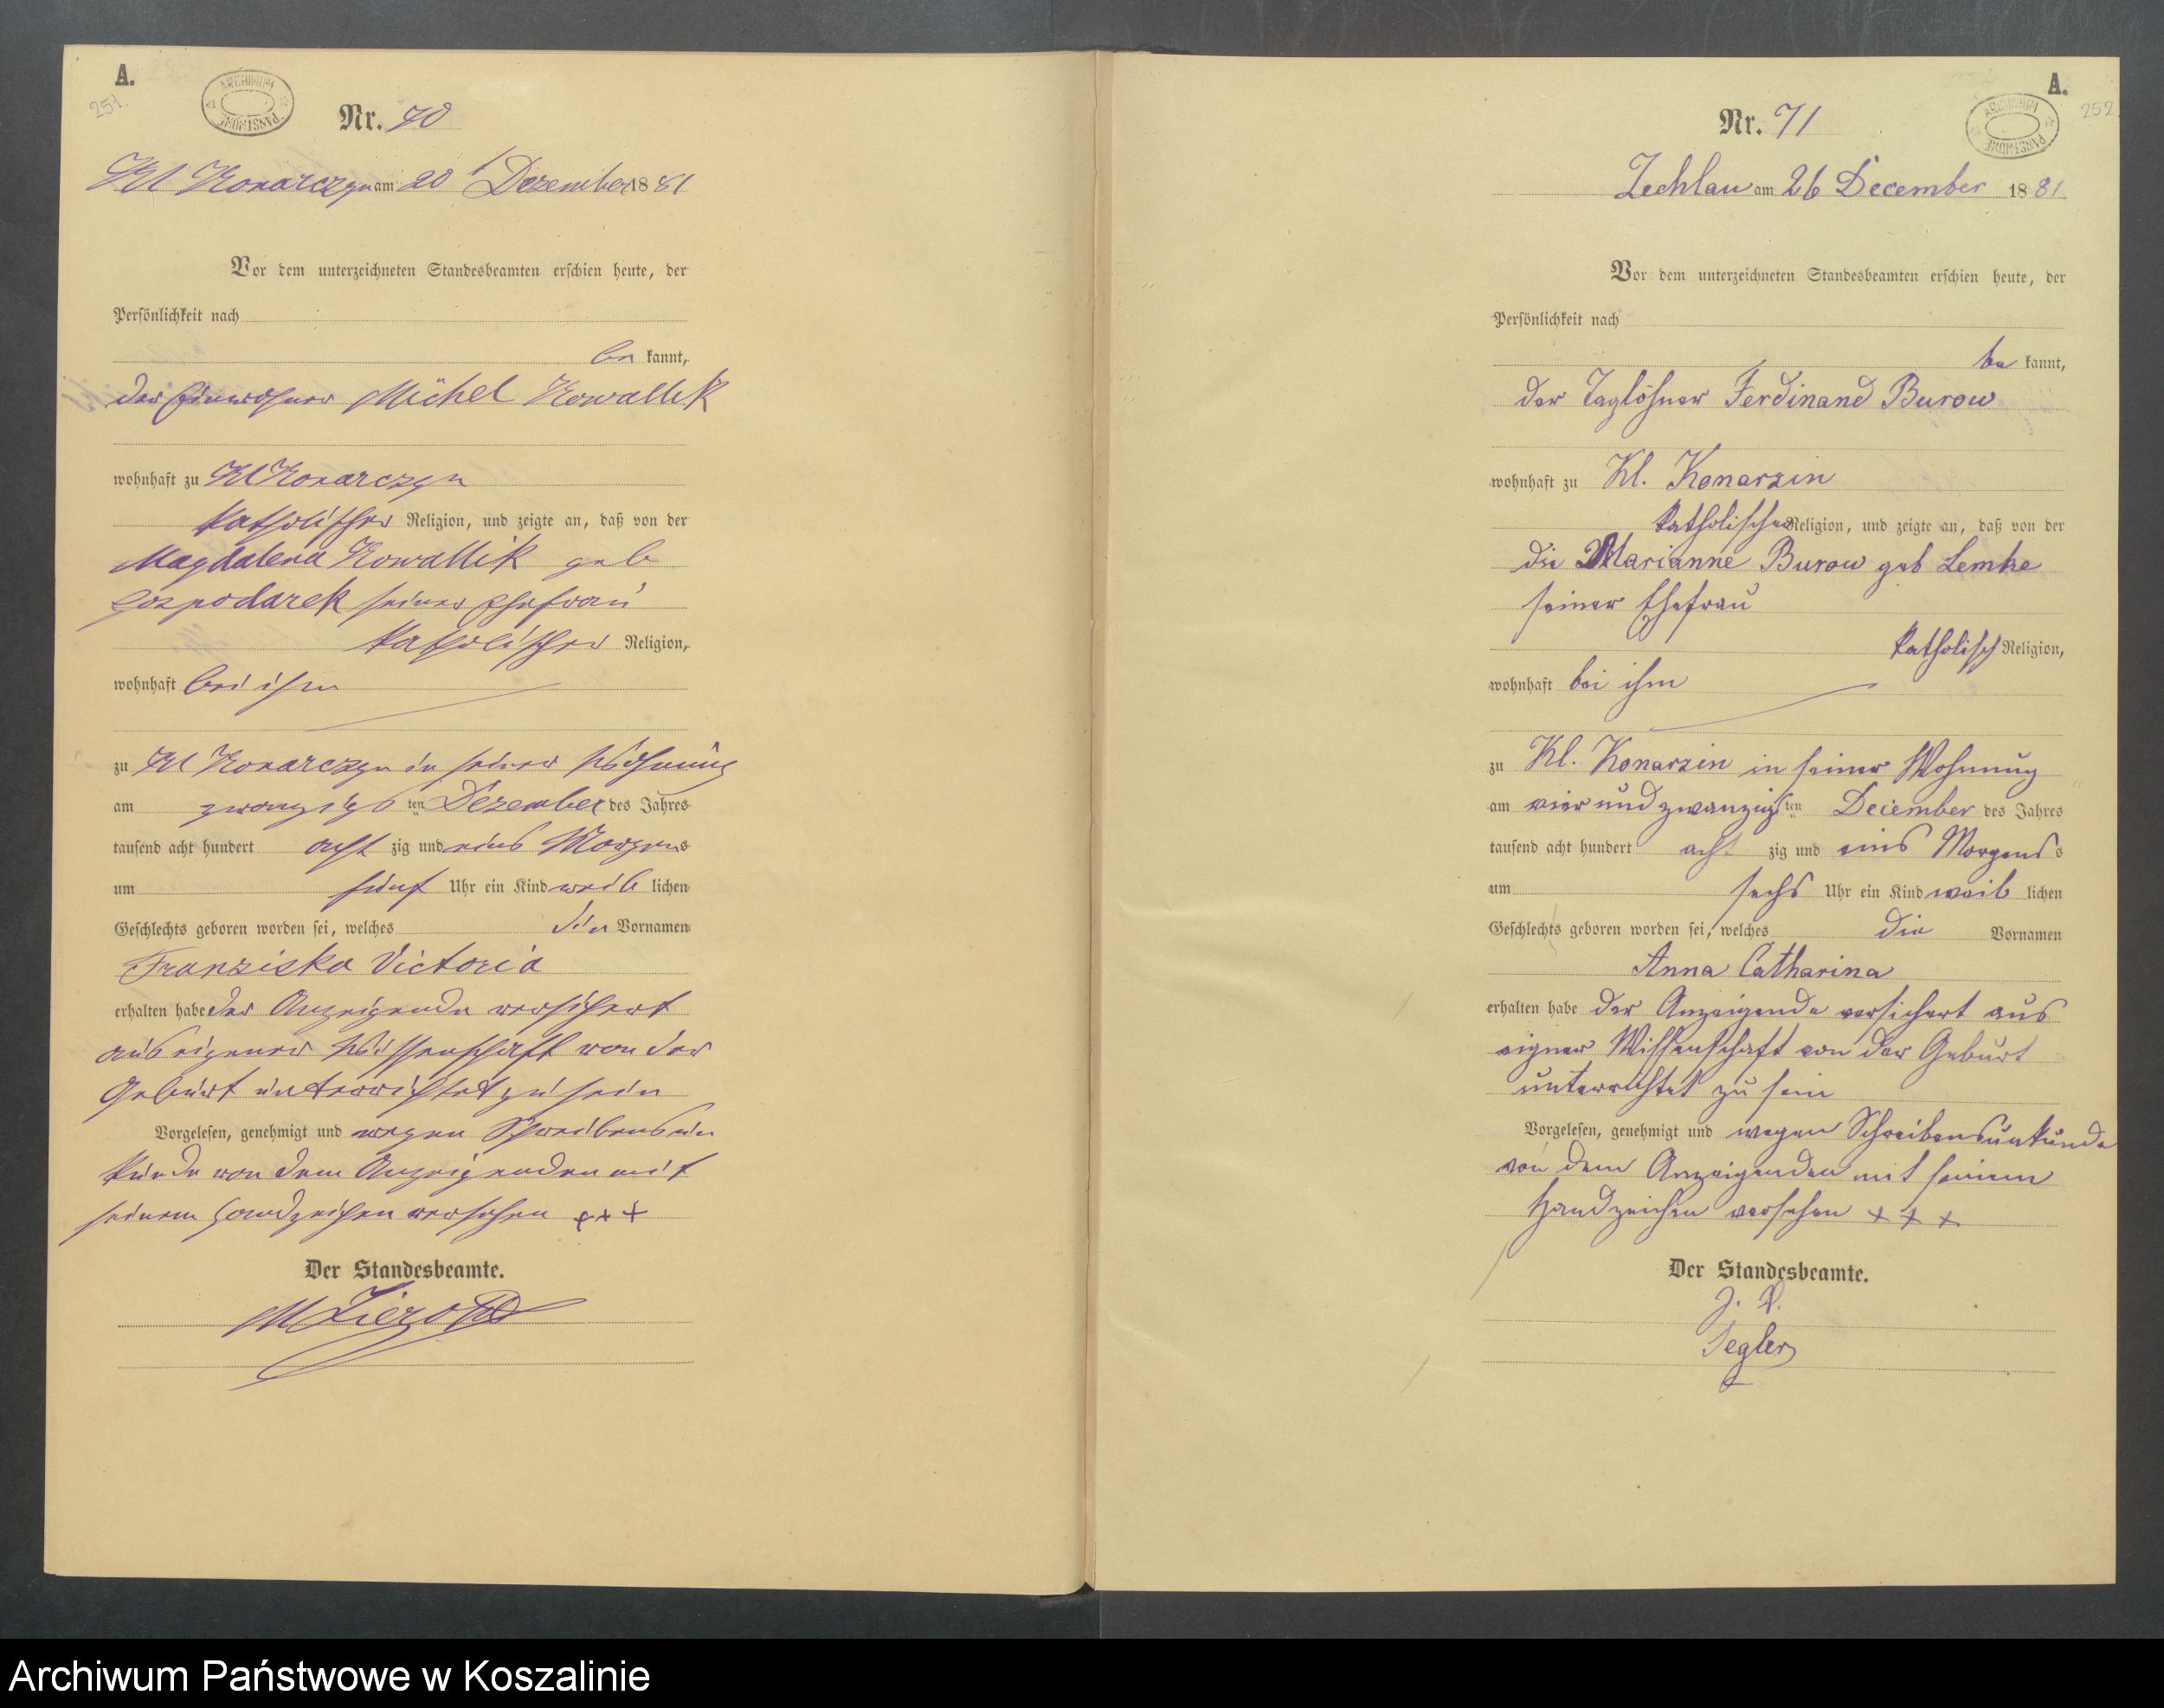 A.
251.
ARCHIWUM PAŃSTWOWE
Nr. 70
Kl Konarczyn am 20 Dezember 1881
Vor dem unterzeichneten Standesbeamten erschien heute, der
Persönlichkeit nach
be kannt,
der Einwohner Michel Kowallek
wohnhaft zu Kl Konarczyn
katholischer Religion, und zeigte an, daß von der
Magdalena Kowallik geb
Gospodarek seiner Ehefrau
katholischer Religion,
wohnhaft bei ihm
zu Kl Konarczyn in seiner Wohnung
am zwanzigs ten Dezember des Jahres
tausend acht hundert acht zig und eins Morgens
um fünf Uhr ein Kind weib lichen
Geschlechts geboren worden sei, welches die Vornamen
Franziska Victoria
erhalten habe der Anzeigende versichert
aus eigener Wissenschaft von der
Geburt unterrichtet zu sein
Vorgelesen, genehmigt und wegen Schreibensun
kunde von dem Anzeigenden mit
seinem Handzeichen versehen +++
Der Standesbeamte.
A.
252
ARCHIWUM PAŃSTWOWE
Nr. 71
Zechlau am 26 December 1881
Vor dem unterzeichneten Standesbeamten erschien heute, der
Persönlichkeit nach
be kannt,
der Taglöhner Ferdinand Burow
wohnhaft zu Kl. Konarzin
katholischer Religion, und zeigte an, daß von der
die Marianne Burow geb Lemke
seiner Ehefrau
katholisch Religion,
wohnhaft bei ihm
zu Kl. Konarzin in seiner Wohnung
am vier und zwanzigs ten December des Jahres
tausend acht hundert acht zig und eins Morgens s
um sechs Uhr ein Kind weib lichen
Geschlechts geboren worden sei, welches die Vornamen
Anna Catharina
erhalten habe der Anzeigende versichert aus
eigner Wissenschaft von der Geburt
unterrichtet zu sein
Vorgelesen, genehmigt und wegen Schreibensunkunde
von dem Anzeigenden mit seinem
Handzeichen versehen + + +
Der Standesbeamte.
J. V.
Segler
Archiwum Państwowe w Koszalinie